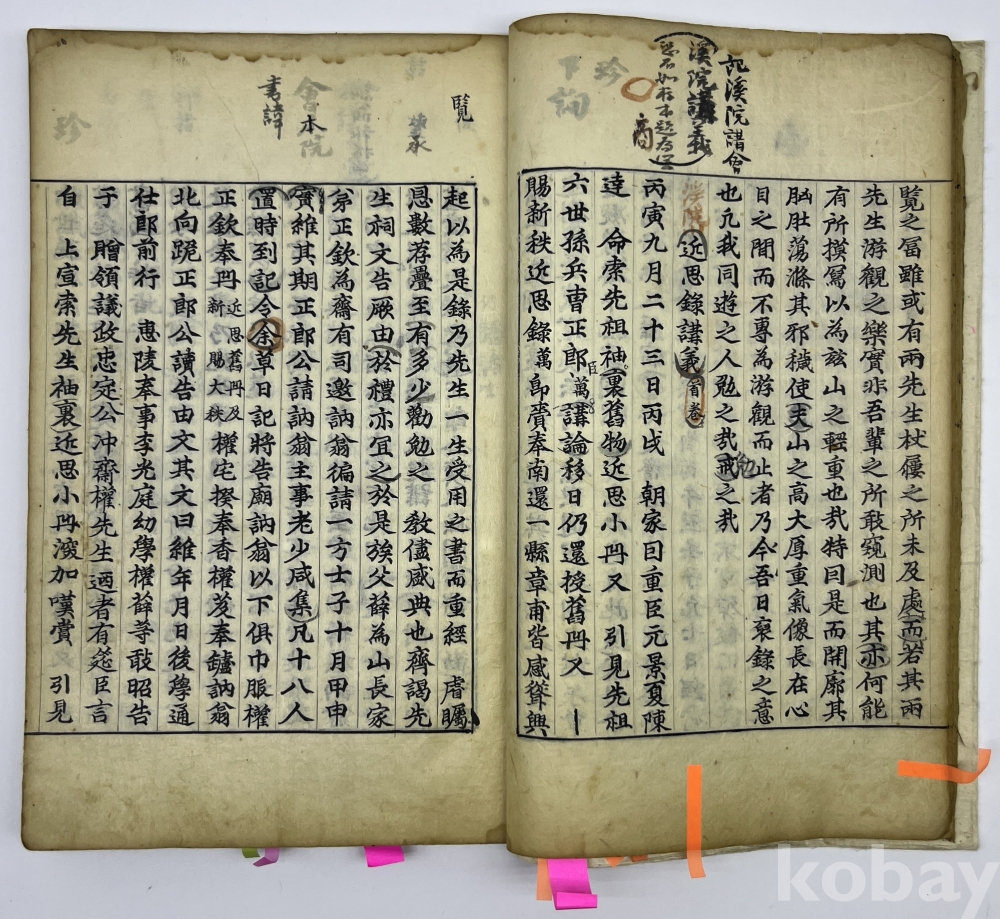 記溪院講會
溪院講義
珍
下詢
商
覽之冨雖或有兩先生杖屨之所未及處而若其兩
先生游觀之樂實非吾輩之所敢窺測也其亦何能
有所摸寫以為玆山之輕重也哉特曰是而開廓其
胸肚蕩滌其邪穢使夫山之高大厚重氣像長在心
目之間而不專為游觀而止者乃今吾日裒錄之意
也凢我同遊之人勉之哉戒之哉
勉
近思錄講義首卷
丙寅九月二十三日丙戌 朝家曰重臣元景夏陳
達 命索先祖袖裏舊物近思小冊又 引見先祖
六世孫兵曺正郎臣萬講論移日仍還授舊冊又
賜新秩近思錄萬卽賫奉南還一縣章甫皆感聳興
覽
書諱
會本院
珍
起以為是錄乃先生一生受用之書而重經 睿矚
恩數荐疊至有多少勸勉之 敎儘盛典也齊謁先
生祠文告厥由於禮亦冝之於是族父薛為山長家
苐正欽為齋有司邀訥翁徧請一方士子十月甲申
實維其期正郎公請訥翁主事老少咸集凡十八人
置時到記令余草日記將告廟訥翁以下俱巾服權
正欽奉冊近思舊冊及新賜大秩權宅揆奉香權芨奉鑪訥翁
北向跪正郎公讀告由文其文曰維年月日後學通
仕郎前行 惠陵奉事李光庭幼學權薛等敢昭告
于 贈領議政忠定公冲齋權先生廼者有筵臣言
自 上宣索先生袖裏近思小冊深加嘆賞 引見
kobay